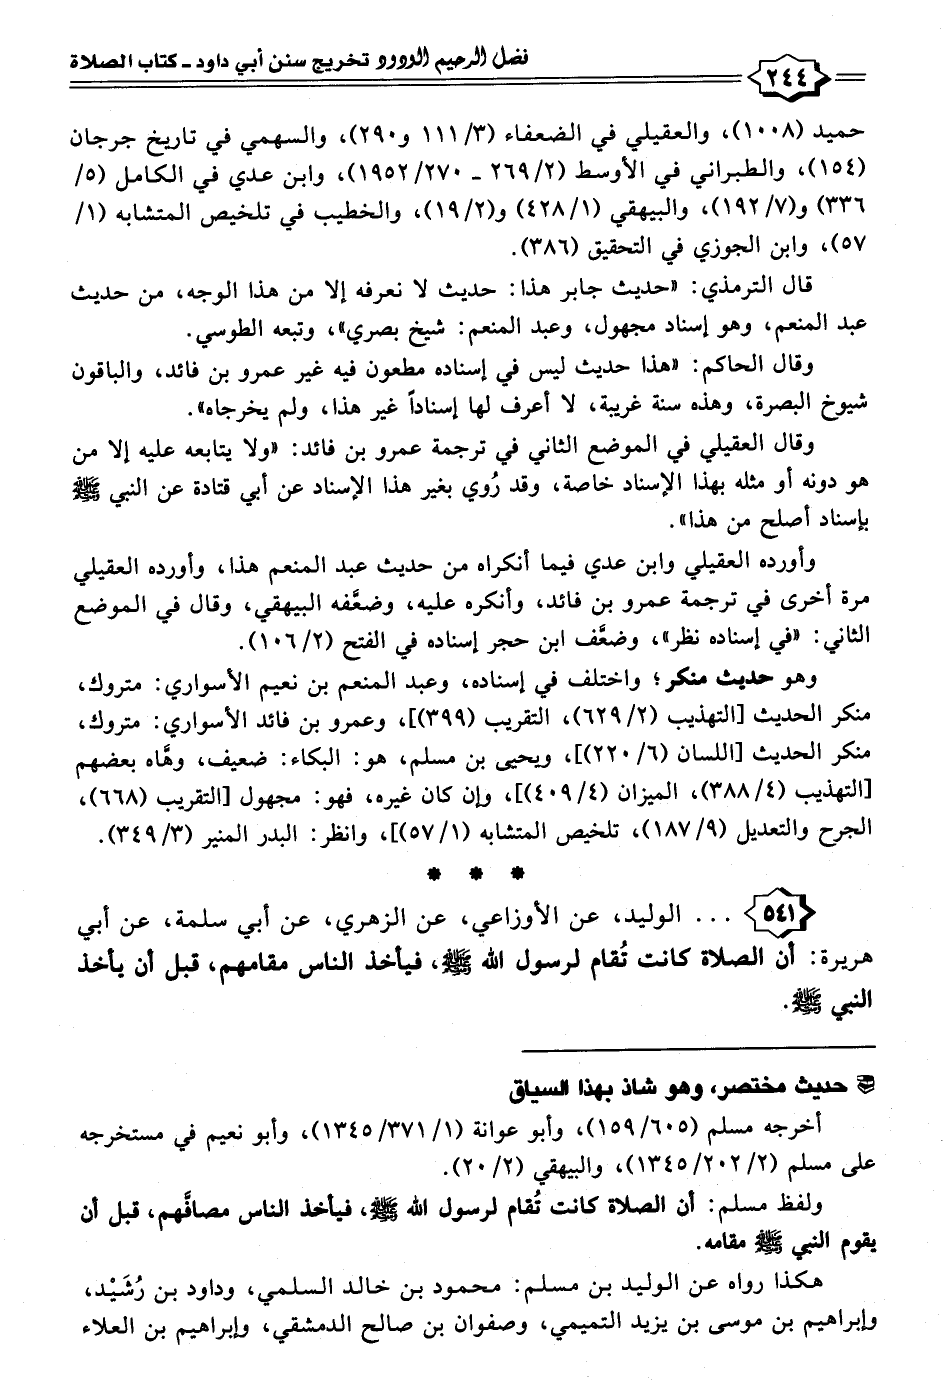 فضل الرحيم الودود تخريج سنن أبي داود - كتاب الصلاة
٢٤٤
حميد (١٠٠٨)، والعقيلي في الضعفاء (٣/ ١١١ و٢٩٠)، والسهمي في تاريخ جرجان
(١٥٤)، والطبراني في الأوسط (٢/ ٢٦٩ - ٢٧٠/ ١٩٥٢)، وابن عدي في الكامل (٥/
٣٣٦) و(٧/ ١٩٢)، والبيهقي (١/ ٤٢٨) و(٢/ ١٩)، والخطيب في تلخيص المتشابه (١/
٥٧)، وابن الجوزي في التحقيق (٣٨٦).
قال الترمذي: «حديث جابر هذا: حديث لا نعرفه إلا من هذا الوجه، من حديث
عبد المنعم، وهو إسناد مجهول، وعبد المنعم: شيخ بصري»، وتبعه الطوسي.
وقال الحاكم: «هذا حديث ليس في إسناده مطعون فيه غير عمرو بن فائد، والباقون
شيوخ البصرة، وهذه سنة غريبة، لا أعرف لها إسناداً غير هذا، ولم يخرجاه».
وقال العقيلي في الموضع الثاني في ترجمة عمرو بن فائد: «ولا يتابعه عليه إلا من
هو دونه أو مثله بهذا الإسناد خاصة، وقد رُوي بغير هذا الإسناد عن أبي قتادة عن النبي ﷺ
بإسناد أصلح من هذا».
وأورده العقيلي وابن عدي فيما أنكراه من حديث عبد المنعم هذا، وأورده العقيلي
مرة أخرى في ترجمة عمرو بن فائد، وأنكره عليه، وضعَّفه البيهقي، وقال في الموضع
الثاني: «في إسناده نظر»، وضعَّف ابن حجر إسناده في الفتح (٢/ ١٠٦).
وهو حديث منكر؛ واختلف في إسناده، وعبد المنعم بن نعيم الأسواري: متروك،
منكر الحديث [التهذيب (٢/ ٦٢٩)، التقريب (٣٩٩)]، وعمرو بن فائد الأسواري: متروك،
منكر الحديث [اللسان (٦/ ٢٢٠)]، ويحيى بن مسلم، هو: البكاء: ضعيف، وهَّاه بعضهم
[التهذيب (٤/ ٣٨٨)، الميزان (٤/ ٤٠٩)]، وإن كان غيره، فهو: مجهول [التقريب (٦٦٨)،
الجرح والتعديل (٩/ ١٨٧)، تلخيص المتشابه (١/ ٥٧)]، وانظر: البدر المنير (٣/ ٣٤٩).
* * *
٥٤١ ... الوليد، عن الأوزاعي، عن الزهري، عن أبي سلمة، عن أبي
هريرة: أن الصلاة كانت تُقام لرسول الله ﷺ، فيأخذ الناس مقامهم، قبل أن يأخذ
النبي ﷺ.
حديث مختصر، وهو شاذ بهذا السياق
أخرجه مسلم (٦٠٥/ ١٥٩)، وأبو عوانة (١/ ٣٧١/ ١٣٤٥)، وأبو نعيم في مستخرجه
على مسلم (٢/ ٢٠٢/ ١٣٤٥)، والبيهقي (٢/ ٢٠).
ولفظ مسلم: أن الصلاة كانت تُقام لرسول الله ﷺ، فيأخذ الناس مصافَّهم، قبل أن
يقوم النبي ﷺ مقامه.
هكذا رواه عن الوليد بن مسلم: محمود بن خالد السلمي، وداود بن رُشَيْد،
وإبراهيم بن موسى بن يزيد التميمي، وصفوان بن صالح الدمشقي، وإبراهيم بن العلاء